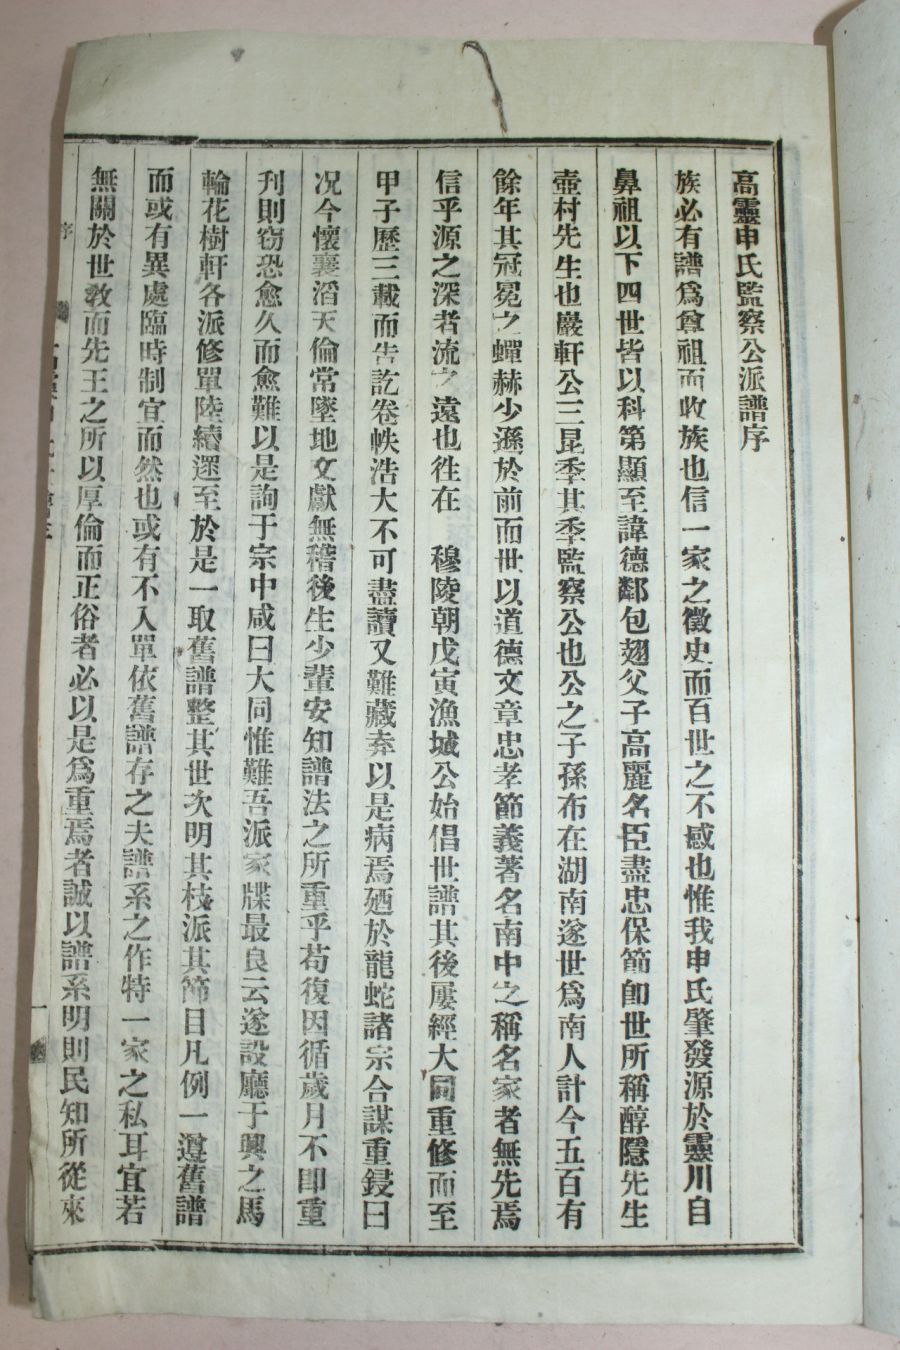 高靈申氏監察公派譜序
族必有譜爲尊祖而收族也信一家之徵史而百世之不感也惟我申氏肇發源於靈川自
鼻祖以下四世皆以科第顯至諱德鄰包翅父子高麗名臣盡忠保節卽世所稱醇隱先生
壺村先生也巖軒公三昆季其季監察公也公之子孫布在湖南遂世爲南人計今五百有
餘年其冠冕之蟬赫少遜於前而世以道德文章忠孝節義著名南中之稱名家者無先焉
信乎源之深者流之遠也徃在 穆陵朝戊寅漁城公始倡世譜其後屢經大同重修而至
甲子歷三載而告訖卷帙浩大不可盡讀又難藏弆以是病焉廼於龍蛇諸宗合謀重鋟曰
况今懷襄滔天倫常墜地文獻無稽後生少輩安知譜法之所重乎苟復因循歲月不卽重
刋則窃恐愈久而愈難以是詢于宗中咸曰大同惟難吾派家牒最良云遂設廳于興之馬
輪花樹軒各派修單陸續還至於是一取舊譜整其世次明其枝派其節目凡例一遵舊譜
而或有異處臨時制宜而然也或有不入單依舊譜存之夫譜系之作特一家之私耳宜若
無關於世敎而先王之所以厚倫而正俗者必以是爲重焉者誠以譜系明則民知所從來
序
一